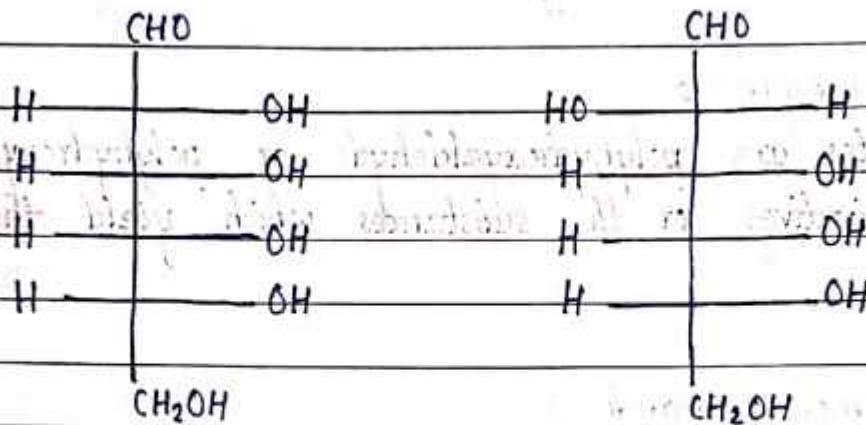 CHO CHO
H OH HO H
H OH H OH
H OH H OH
H OH H OH
CH₂OH CH₂OH